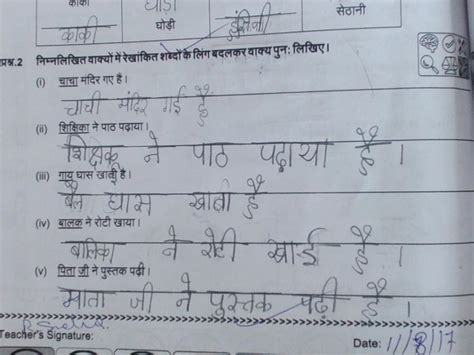 काकी घोड़ी सेठानी
काकी हंसिनी
प्रश्न.2 निम्नलिखित वाक्यों में रेखांकित शब्दों के लिंग बदलकर वाक्य पुनः लिखिए।
(i) चाचा मंदिर गए है।
चाची मंदिर गई है
(ii) शिक्षिका ने पाठ पढ़ाया।
शिक्षक ने पाठ पढ़ाया है।
(iii) गाय घास खाती है
बैल घास खाता है
(iv) बालक ने रोटी खाया।
बालिका ने रोटी खाई है।
(v) पिता जी ने पुस्तक पढ़ी।
माता जी ने पुस्तक पढ़ी है।
Teacher's Signature: Date: 11/8/17